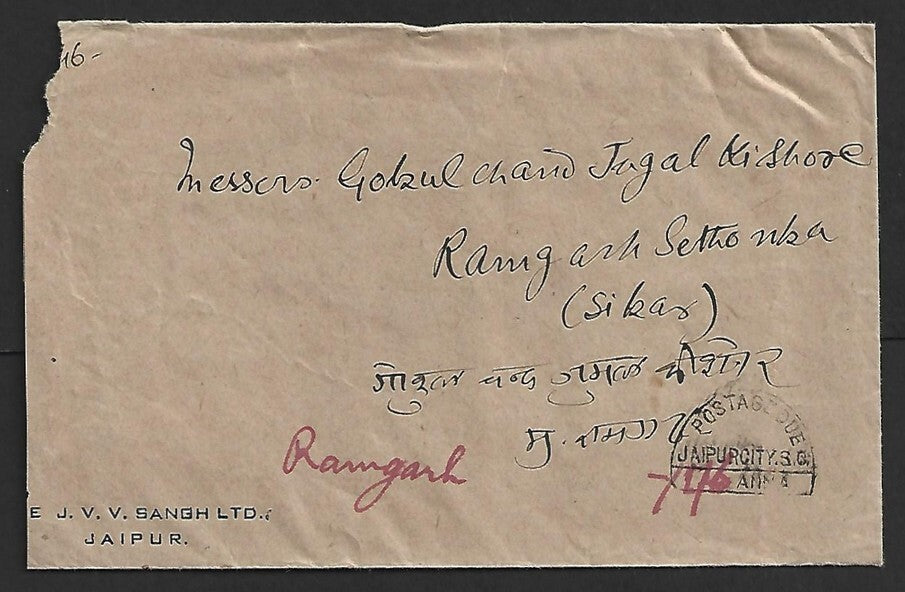 16-
Messers. Gokulchand Jugal Kishore
Ramgarh Sethonka
(Sikar)
गोकुल चन्द जुगल कीशोर
मु. रामगढ़
POSTAGE DUE
JAIPUR CITY. S.O.
ANNA
Ramgarh
-/1/6
E J. V. V. SANGH LTD.,
JAIPUR.